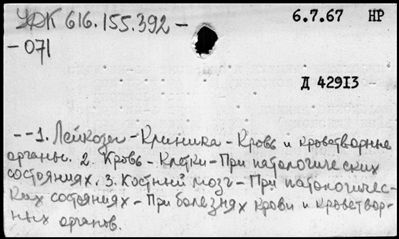 УДК 616.155.392 -
6.7.67 НР
- 071
Д 42913
-- 1. Лейкозы - Клиника - Кровь и кроветворные
органы. 2. Кровь - Клетки - При патологических
состояниях. 3. Костный мозг - При патологичес-
ких состояниях - При болезнях крови и кроветвор-
ных органов.